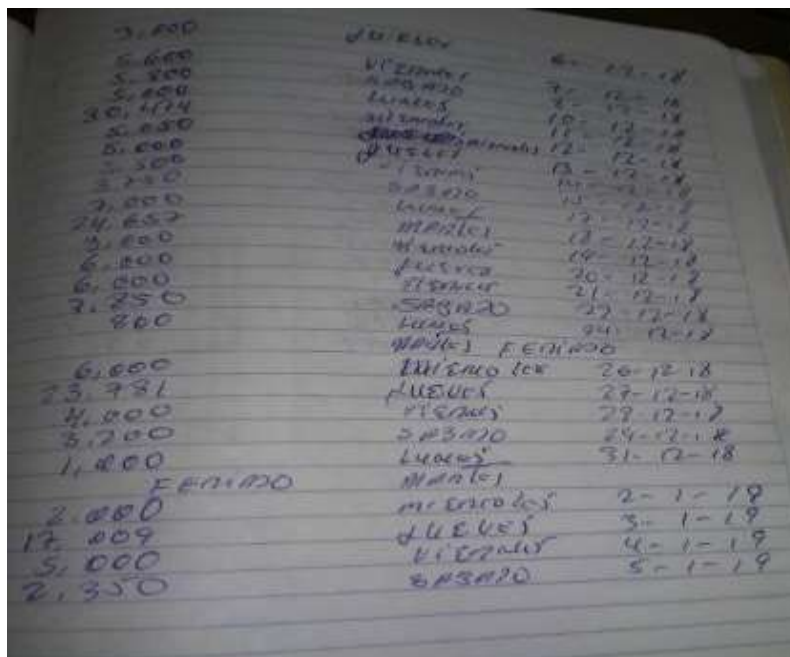 3.000 JUEVES 6-12-18
5.600 VIERNES 7-12-18
5.800 SABADO 8-12-18
5.000 LUNES 10-12-18
30.414 11-12-18
5.050 MIERCOLES 12-12-18
5.000 JUEVES 13-12-18
5.500 14-12-18
3.750 SABADO 15-12-18
7.000 LUNES 17-12-18
24.657 MARTES 18-12-18
3.000 19-12-18
6.000 JUEVES 20-12-18
6.000 VIERNES 21-12-18
7.850 SABADO 22-12-18
800 LUNES 24-12-18
MARTES FERIADO
6.000 MIERCOLES 26-12-18
23.781 JUEVES 27-12-18
4.000 VIERNES 28-12-18
3.200 SABADO 29-12-18
1.000 LUNES 31-12-18
FERIADO MARTES
2.000 MIERCOLES 2-1-19
17.009 JUEVES 3-1-19
5.000 VIERNES 4-1-19
2.350 SABADO 5-1-19